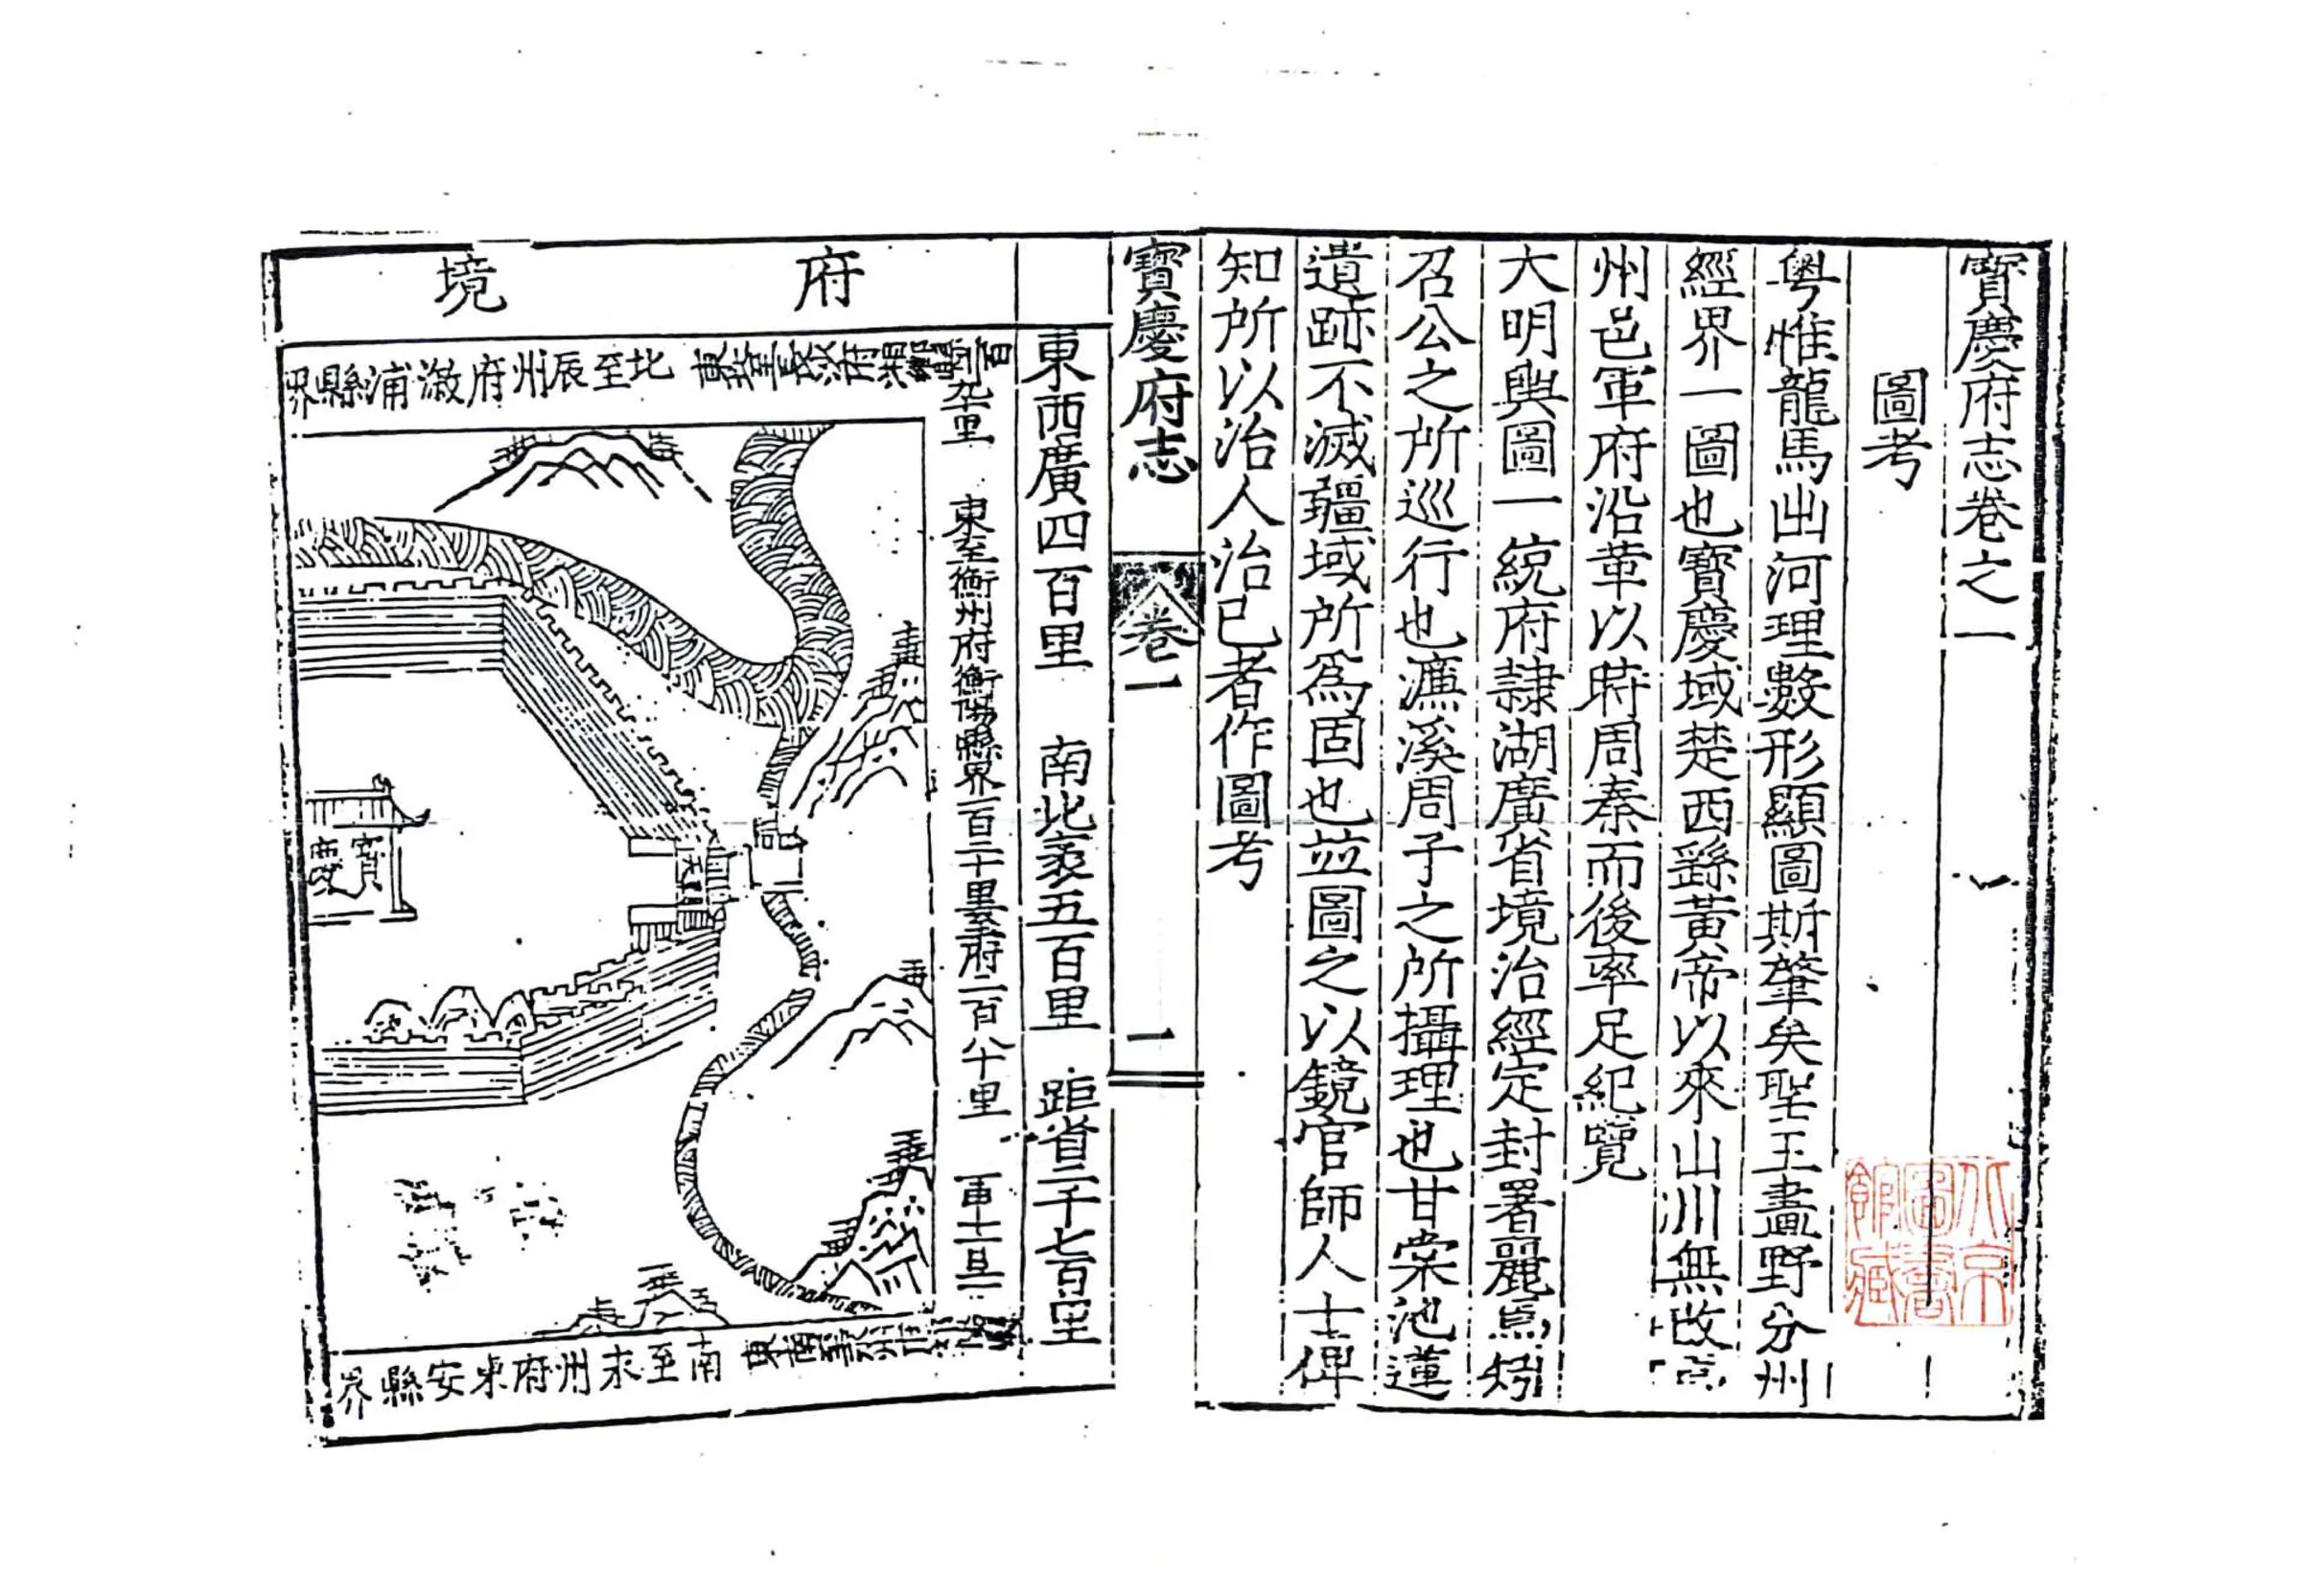 寶慶府志卷之一
圖考
粤惟龍馬出河理數形顯圖斯肇矣聖王畫野分州
經界一圖也寶慶域楚西繇黃帝以來山川無改
州邑軍府沿革以時周秦而後率足紀覽
大明輿圖一統府隷湖廣省境治經定封署麗焉
召公之所巡行也濂溪周子之所攝理也甘棠池蓮
遺跡不滅疆域所爲固也並圖之以鏡官師人士俾
知所以治人治已者作圖考
寶慶府志
卷一
一
東西廣四百里 南北袤五百里 距省二千七百里
東至衡州府衡陽縣界一百二十里至府二百八十里
府境
北至辰州府漵浦縣界
寶慶
南至永州府東安縣界
北京圖書館藏